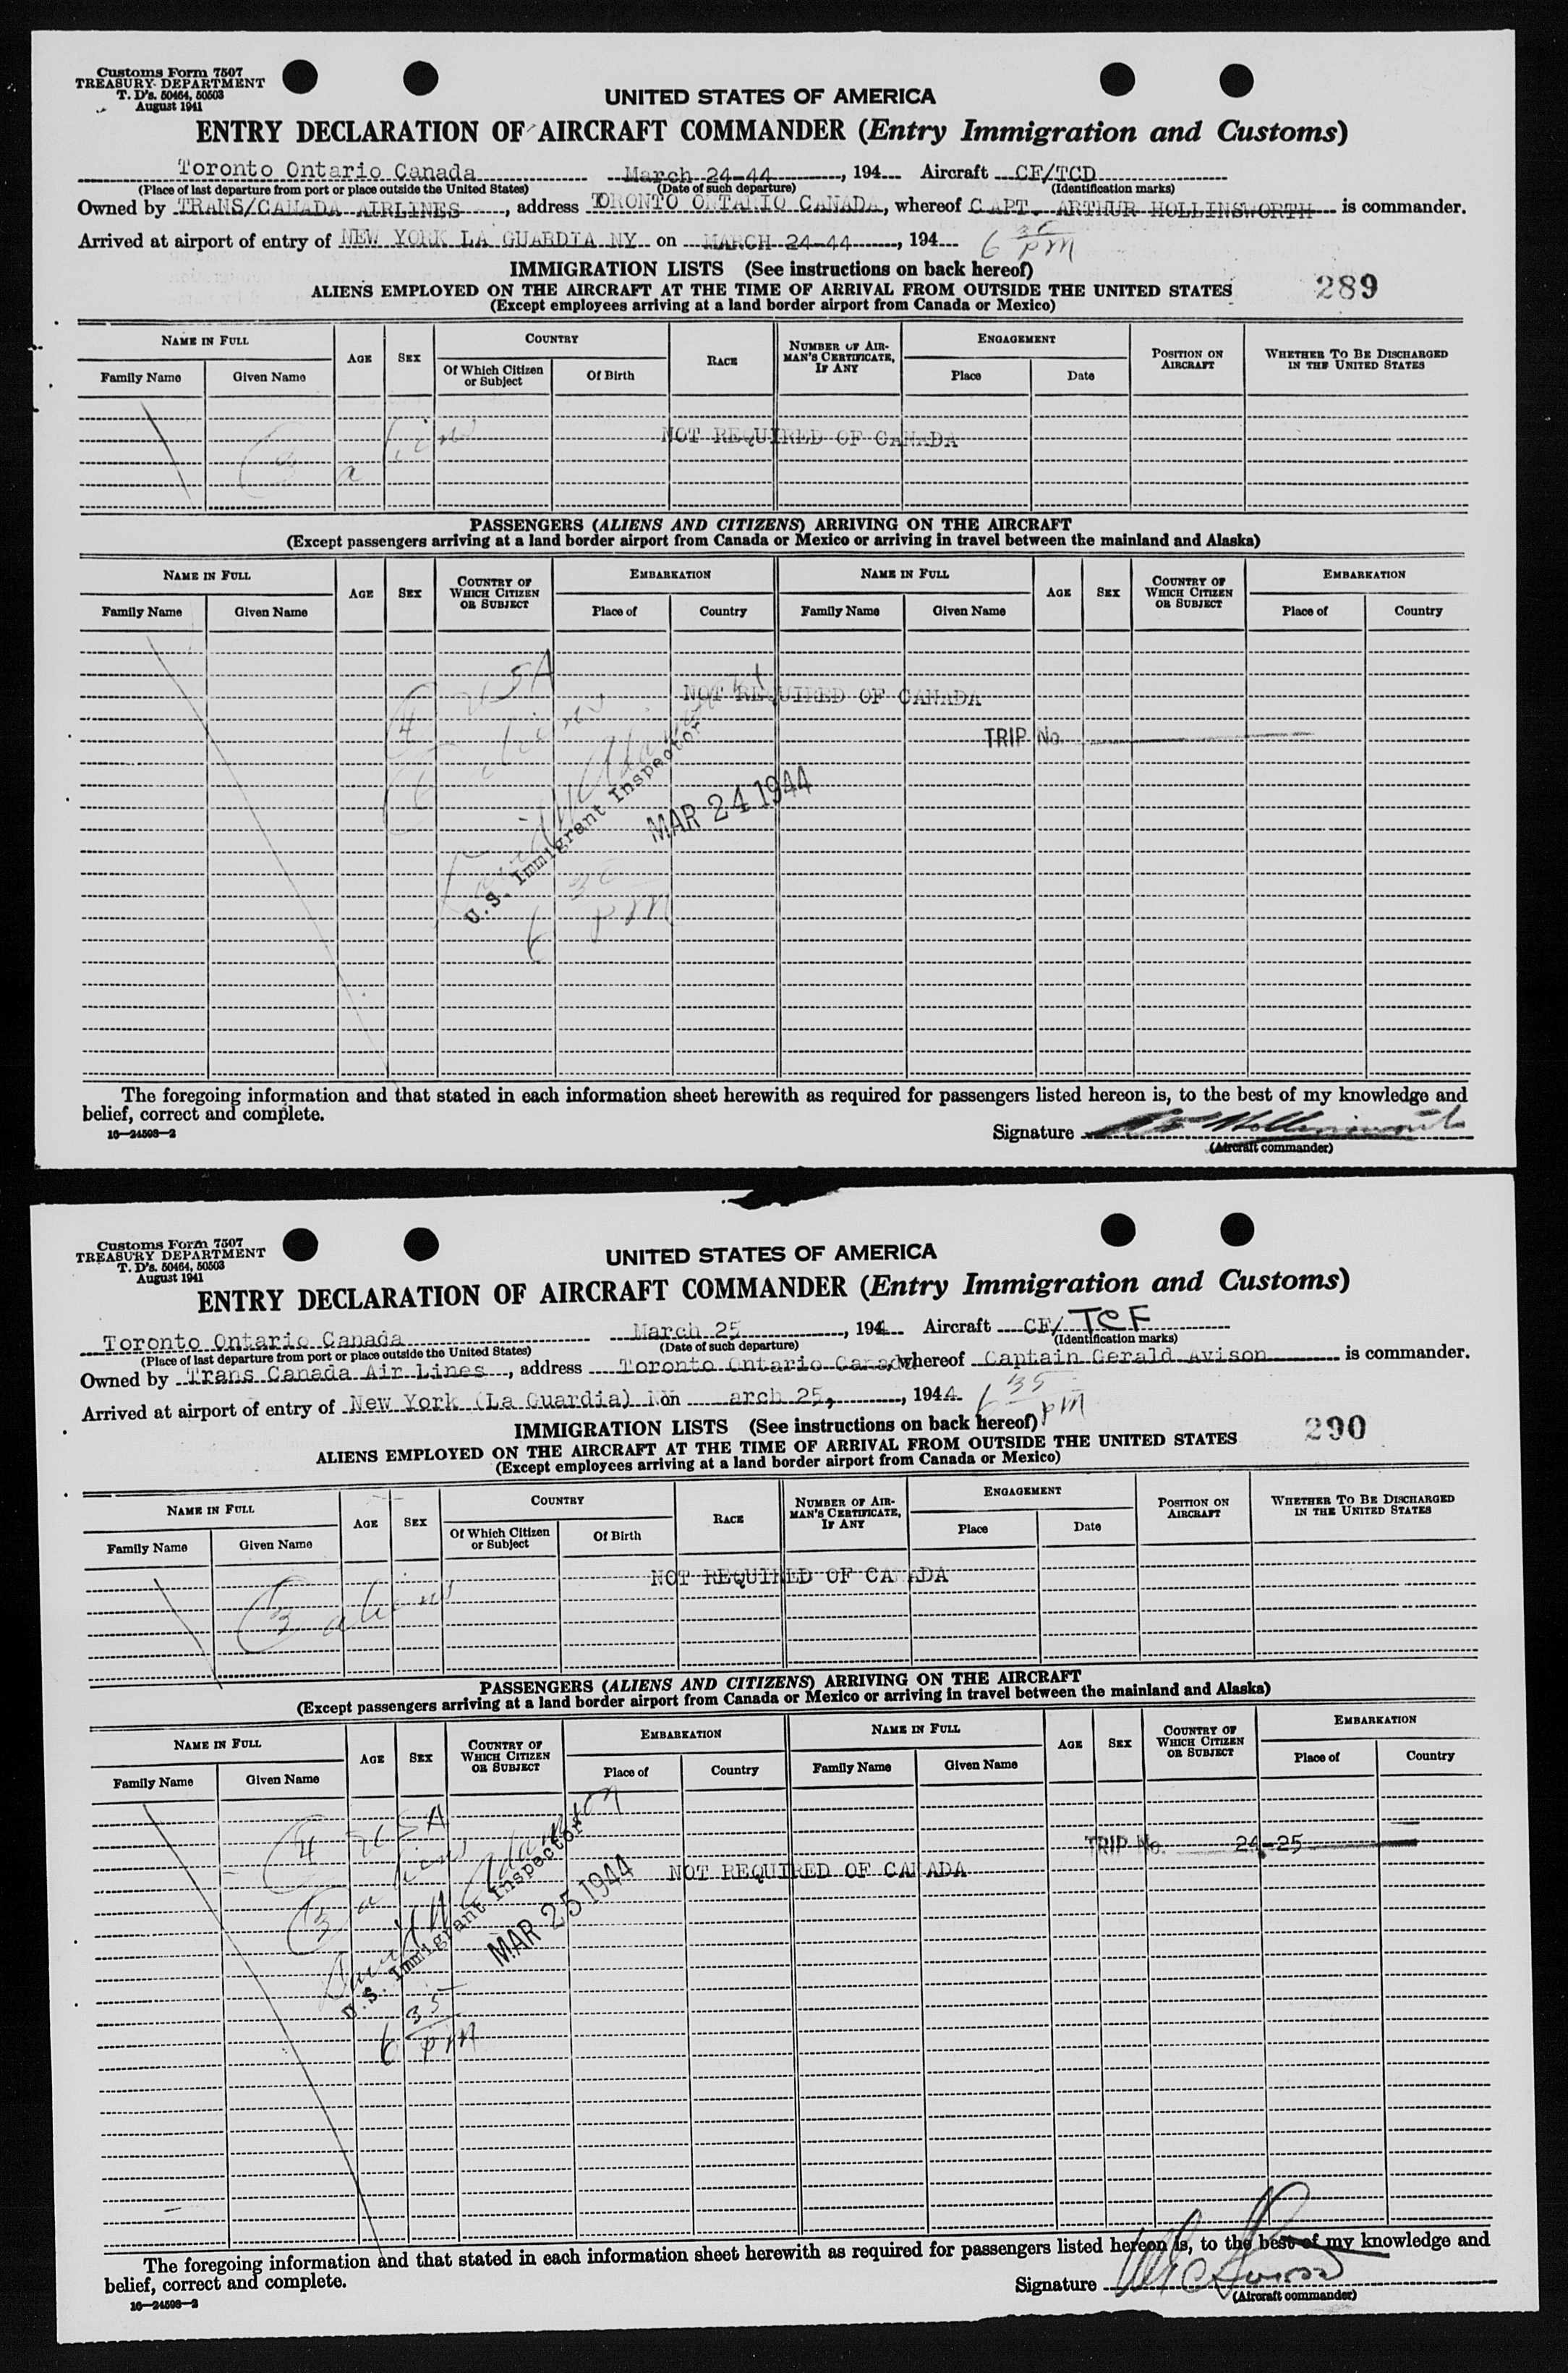 Customs Form 7507
TREASURY DEPARTMENT
T. D's. 50464, 50503
August 1941
UNITED STATES OF AMERICA
ENTRY DECLARATION OF AIRCRAFT COMMANDER (Entry Immigration and Customs)
Toronto Ontario Canada March 24-44, 194 Aircraft CF/TCD
(Place of last departure from port or place outside the United States) (Date of such departure) (Identification marks)
Owned by TRANS/CANADA AIRLINES, address TORONTO ONTARIO CANADA, whereof CAPT. ARTHUR HOLLINSWORTH is commander.
Arrived at airport of entry of NEW YORK LA GUARDIA NY on MARCH 24-44, 194 6 30 pm
IMMIGRATION LISTS (See instructions on back hereof)
289
ALIENS EMPLOYED ON THE AIRCRAFT AT THE TIME OF ARRIVAL FROM OUTSIDE THE UNITED STATES
(Except employees arriving at a land border airport from Canada or Mexico)
NAME IN FULL AGE SEX COUNTRY RACE NUMBER OF AIRMAN'S CERTIFICATE, IF ANY ENGAGEMENT POSITION ON AIRCRAFT WHETHER TO BE DISCHARGED IN THE UNITED STATES
Family Name Given Name Of Which Citizen or Subject Of Birth Place Date
3 aliens
NOT REQUIRED OF CANADA
PASSENGERS (ALIENS AND CITIZENS) ARRIVING ON THE AIRCRAFT
(Except passengers arriving at a land border airport from Canada or Mexico or arriving in travel between the mainland and Alaska)
NAME IN FULL AGE SEX COUNTRY OF WHICH CITIZEN OR SUBJECT EMBARKATION NAME IN FULL AGE SEX COUNTRY OF WHICH CITIZEN OR SUBJECT EMBARKATION
Family Name Given Name Place of Country Family Name Given Name Place of Country
4 USA
NOT REQUIRED OF CANADA
TRIP No.
6 aliens
U.S. Immigrant Inspector
MAR 24 1944
6 30 pm
The foregoing information and that stated in each information sheet herewith as required for passengers listed hereon is, to the best of my knowledge and
belief, correct and complete.
16—24598—2
Signature Hollinsworth
(Aircraft commander)
Customs Form 7507
TREASURY DEPARTMENT
T. D's. 50464, 50503
August 1941
UNITED STATES OF AMERICA
ENTRY DECLARATION OF AIRCRAFT COMMANDER (Entry Immigration and Customs)
Toronto Ontario Canada March 25, 1944 Aircraft CF/TCF
(Place of last departure from port or place outside the United States) (Date of such departure) (Identification marks)
Owned by Trans Canada Air Lines, address Toronto Ontario Canada, whereof Captain Gerald Avison is commander.
Arrived at airport of entry of New York (La Guardia) on arch 25, 1944 6 35 pm
IMMIGRATION LISTS (See instructions on back hereof)
290
ALIENS EMPLOYED ON THE AIRCRAFT AT THE TIME OF ARRIVAL FROM OUTSIDE THE UNITED STATES
(Except employees arriving at a land border airport from Canada or Mexico)
NAME IN FULL AGE SEX COUNTRY RACE NUMBER OF AIRMAN'S CERTIFICATE, IF ANY ENGAGEMENT POSITION ON AIRCRAFT WHETHER TO BE DISCHARGED IN THE UNITED STATES
Family Name Given Name Of Which Citizen or Subject Of Birth Place Date
3 aliens
NOT REQUIRED OF CANADA
PASSENGERS (ALIENS AND CITIZENS) ARRIVING ON THE AIRCRAFT
(Except passengers arriving at a land border airport from Canada or Mexico or arriving in travel between the mainland and Alaska)
NAME IN FULL AGE SEX COUNTRY OF WHICH CITIZEN OR SUBJECT EMBARKATION NAME IN FULL AGE SEX COUNTRY OF WHICH CITIZEN OR SUBJECT EMBARKATION
Family Name Given Name Place of Country Family Name Given Name Place of Country
4 USA
TRIP No. 24-25
3 aliens
NOT REQUIRED OF CANADA
U.S. Immigrant Inspector
MAR 25 1944
6 35 pm
The foregoing information and that stated in each information sheet herewith as required for passengers listed hereon is, to the best of my knowledge and
belief, correct and complete.
16—24598—2
Signature
(Aircraft commander)